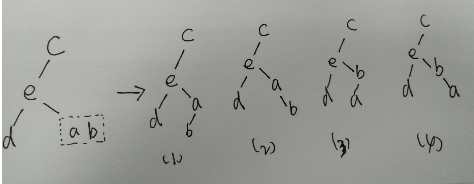 C
e
d
a b
C
e
d a
b
(1)
C
e
d a
b
(2)
C
e
b
d a
(3)
C
e b
d a
(4)